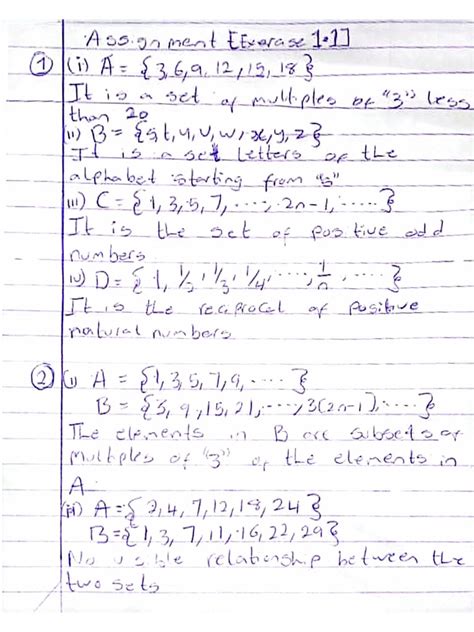 Assignment [Exercise 1.1]
① (i) A = {3,6,9,12,15,18}
It is a set of multiples of "3" less
than 20
ii) B = {s,t,u,v,w,x,y,z}
It is a set letters of the
alphabet starting from "s"
iii) C = {1,3,5,7,....,2n-1,.....}
It is the set of positive odd
numbers
iv) D = {1, 1/2, 1/3, 1/4, ...., 1/n, ....}
It is the reciprocal of positive
natural numbers
② (i) A = {1,3,5,7,9,....}
B = {3,9,15,21,....,3(2n-1),....}
The elements in B are subsets of
multiples of "3" of the elements in
A.
(ii) A = {2,4,7,12,18,24}
B = {1,3,7,11,16,22,29}
No visible relationship between the
two sets